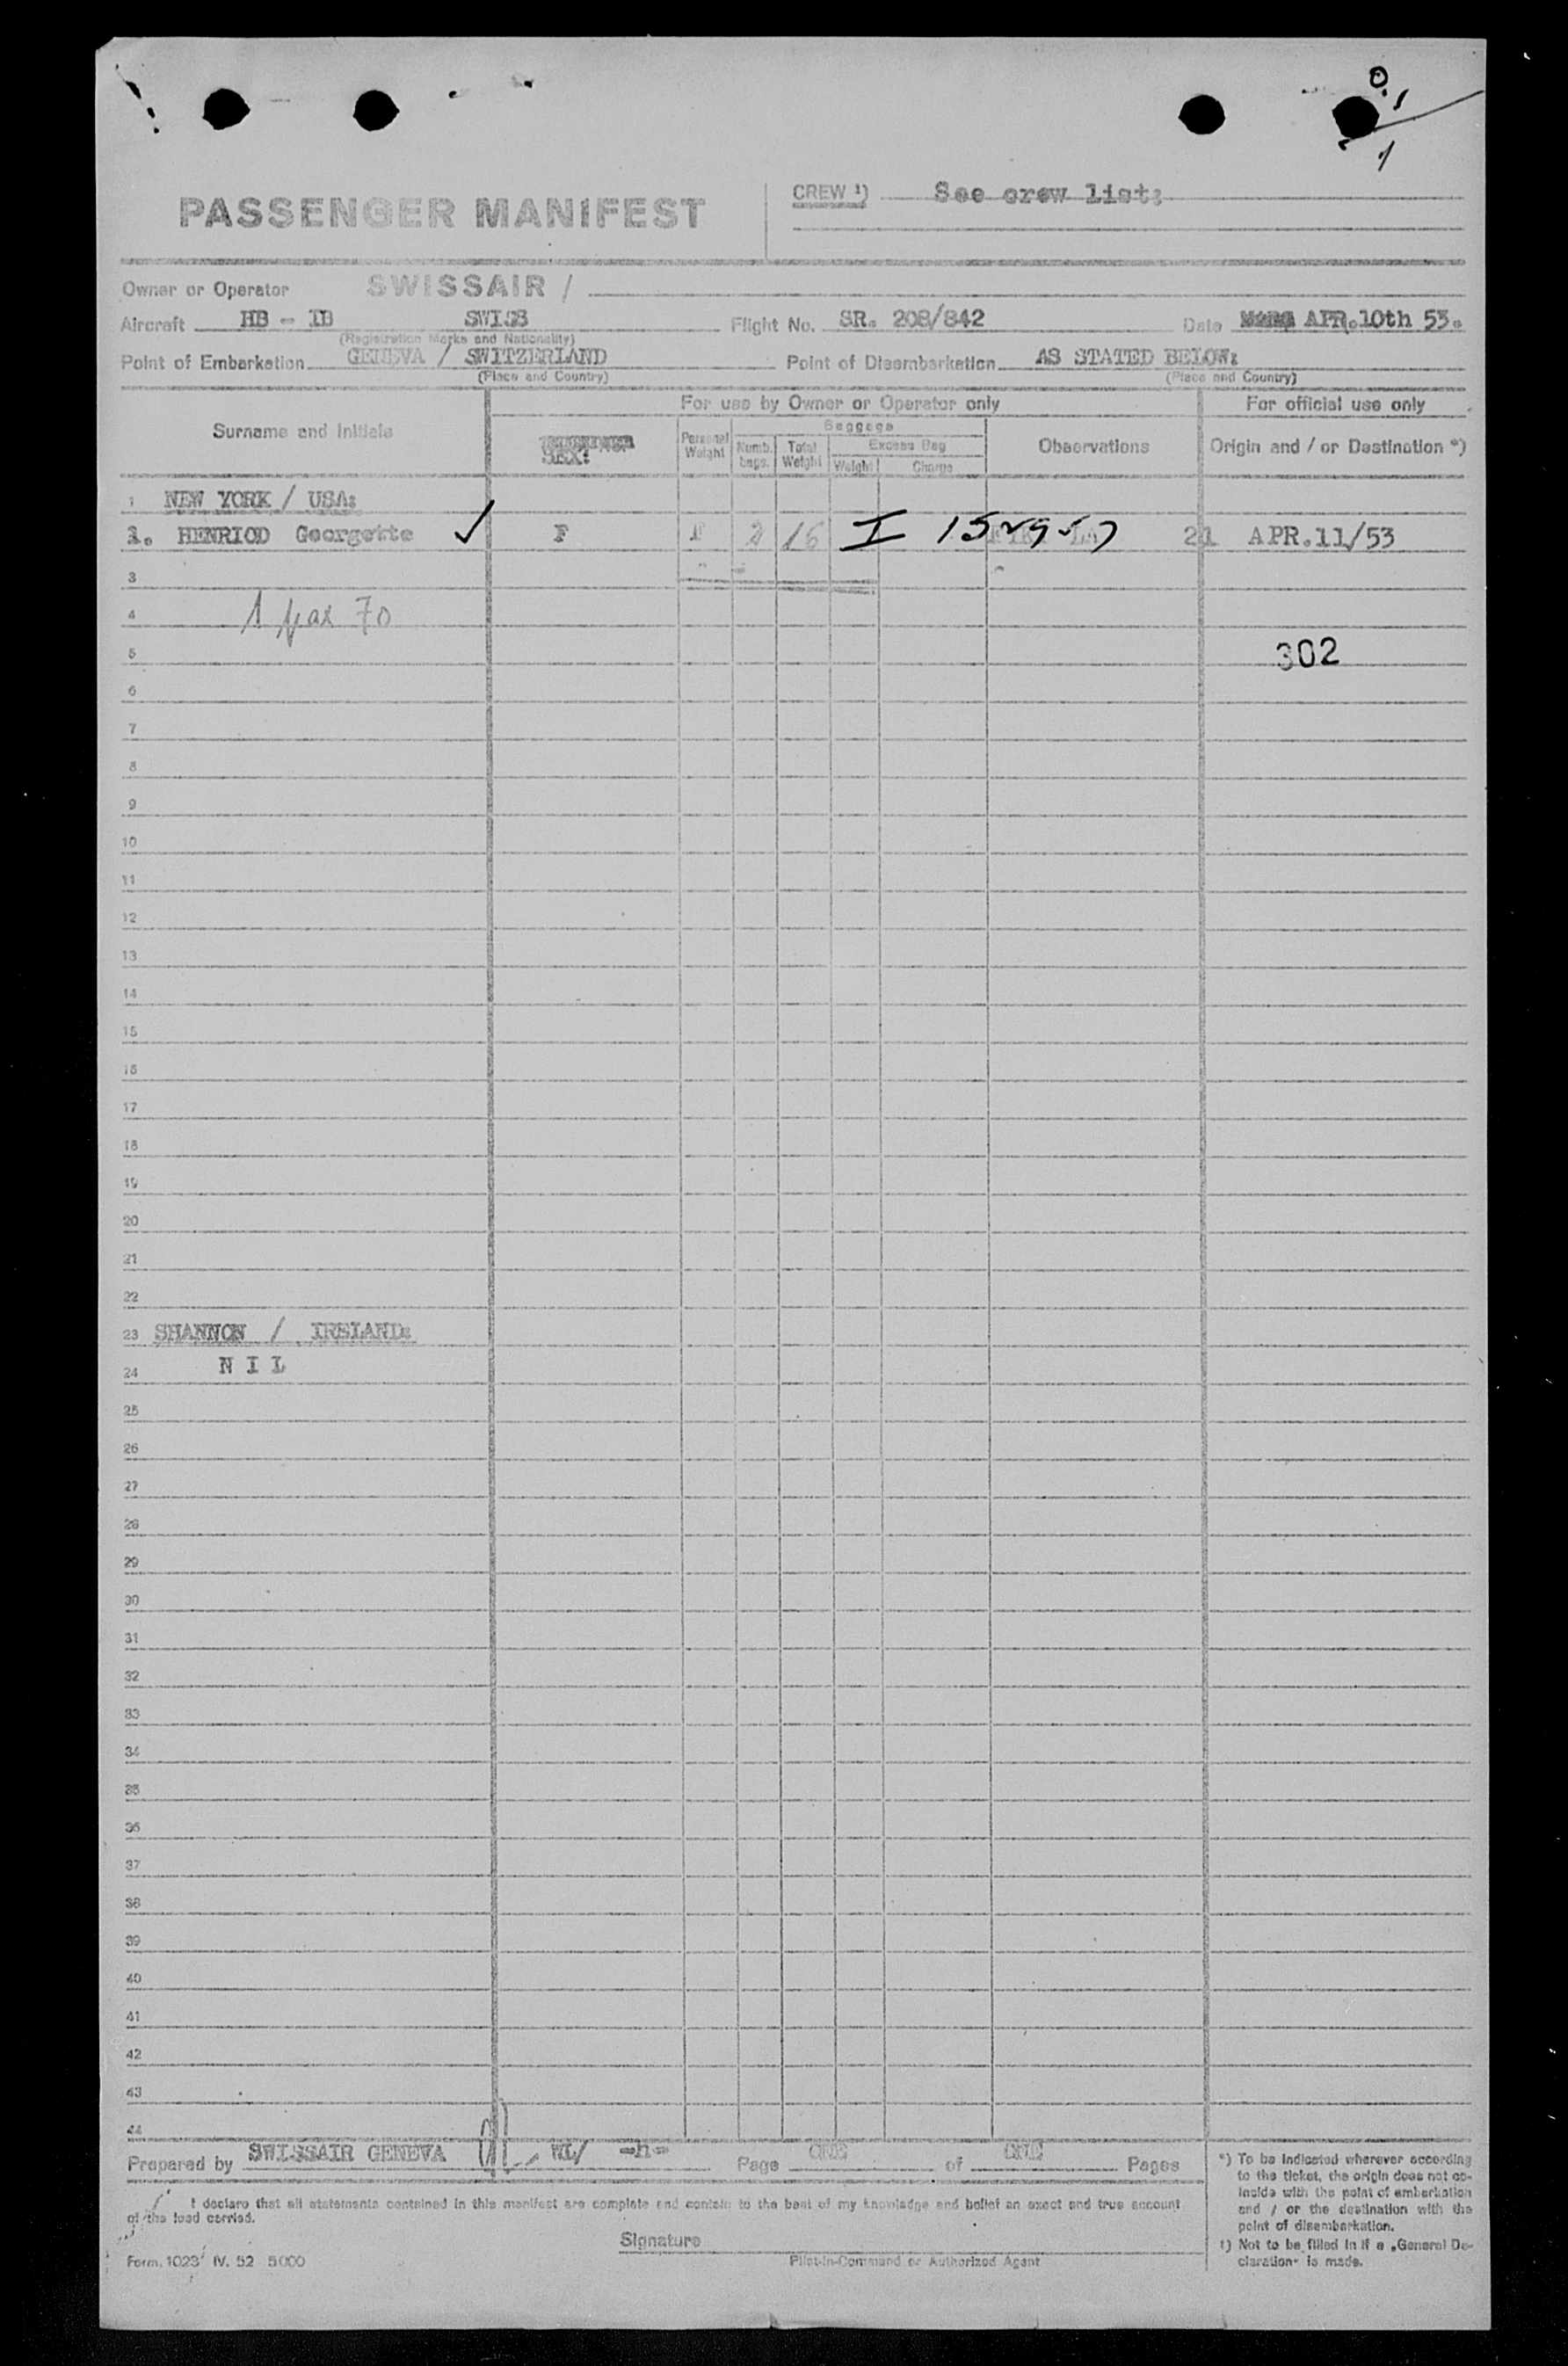 PASSENGER MANIFEST
CREW ¹) See crew list:
Owner or Operator SWISSAIR /
Aircraft HB - IB SWISS Flight No. SR. 208/842 Date APR.10th 53.
(Registration Marks and Nationality)
Point of Embarkation GENEVA / SWITZERLAND Point of Disembarkation AS STATED BELOW:
(Place and Country) (Place and Country)
For use by Owner or Operator only For official use only
Surname and Initials SEX: Personal Weight Baggage Numb. bags. Total Weight Excess Bag Weight Charge Observations Origin and / or Destination *)
1 NEW YORK / USA:
1. HENRIOD Georgette ✓ F F 2 16 I 21 APR.11/53
3
4 1 pax 70
5 302
6
7
8
9
10
11
12
13
14
15
16
17
18
19
20
21
22
23 SHANNON / IRELAND:
24 N I L
25
26
27
28
29
30
31
32
33
34
35
36
37
38
39
40
41
42
43
44
Prepared by SWISSAIR GENEVA WL/ -h- Page ONE of ONE Pages
I declare that all statements contained in this manifest are complete and contain to the best of my knowledge and belief an exact and true account
of the load carried.
Signature
Pilot-in-Command or Authorized Agent
Form. 1023 IV. 52 5000
*) To be indicated wherever according
to the ticket, the origin does not co-
incide with the point of embarkation
and / or the destination with the
point of disembarkation.
1) Not to be filled in if a „General De-
claration" is made.